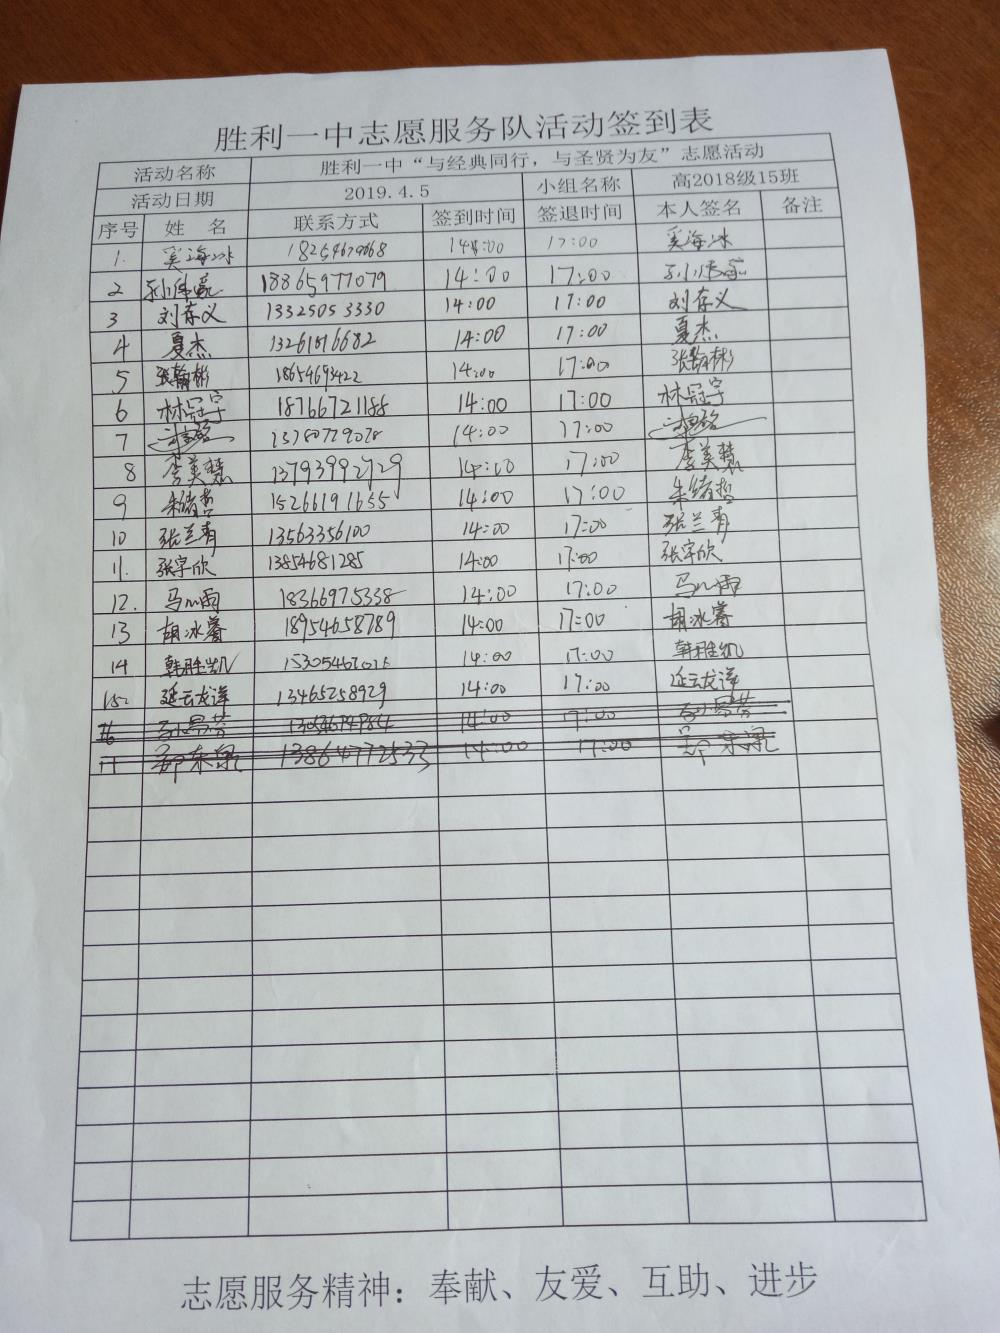 胜利一中志愿服务队活动签到表
活动名称 胜利一中“与经典同行，与圣贤为友”志愿活动
活动日期 2019.4.5 小组名称 高2018级15班
序号 姓 名 联系方式 签到时间 签退时间 本人签名 备注
1. 奚海冰 14:00 17:00 奚海冰
2 18865977079 14:00 17:00
3 刘存义 13325053330 14:00 17:00 刘存义
4 夏杰 14:00 17:00 夏杰
5 张翰彬 14:00 17:00 张翰彬
6 林冠宇 18766721188 14:00 17:00 林冠宇
7 14:00 17:00
8 李美慧 13793992729 14:00 17:00 李美慧
9 朱绪哲 15266191655 14:00 17:00 朱绪哲
10 张兰青 13563356100 14:00 17:00 张兰青
11. 张宇欣 13854681285 14:00 17:00 张宇欣
12. 马心雨 18366975338 14:00 17:00 马心雨
13 胡冰睿 18954658789 14:00 17:00 胡冰睿
14 韩胜凯 14:00 17:00 韩胜凯
15 延云龙泽 13465258929 14:00 17:00 延云龙泽
14:00 17:00
17 13864772533 14:00 17:00
志愿服务精神：奉献、友爱、互助、进步